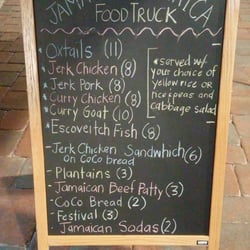 FOOD TRUCK
* Oxtails (11)
* Jerk Chicken (8)
* Jerk Pork (8)
* Curry Chicken (8)
* Curry Goat (10)
* Escoveitch Fish (8)
* served w/
your choice of
yellow rice or
rice & peas and
cabbage salad
- Jerk Chicken Sandwhich (6)
on Coco bread
- Plantains (3)
- Jamaican Beef Patty (3)
- Coco Bread (2)
- Festival (3)
- Jamaican Sodas (2)